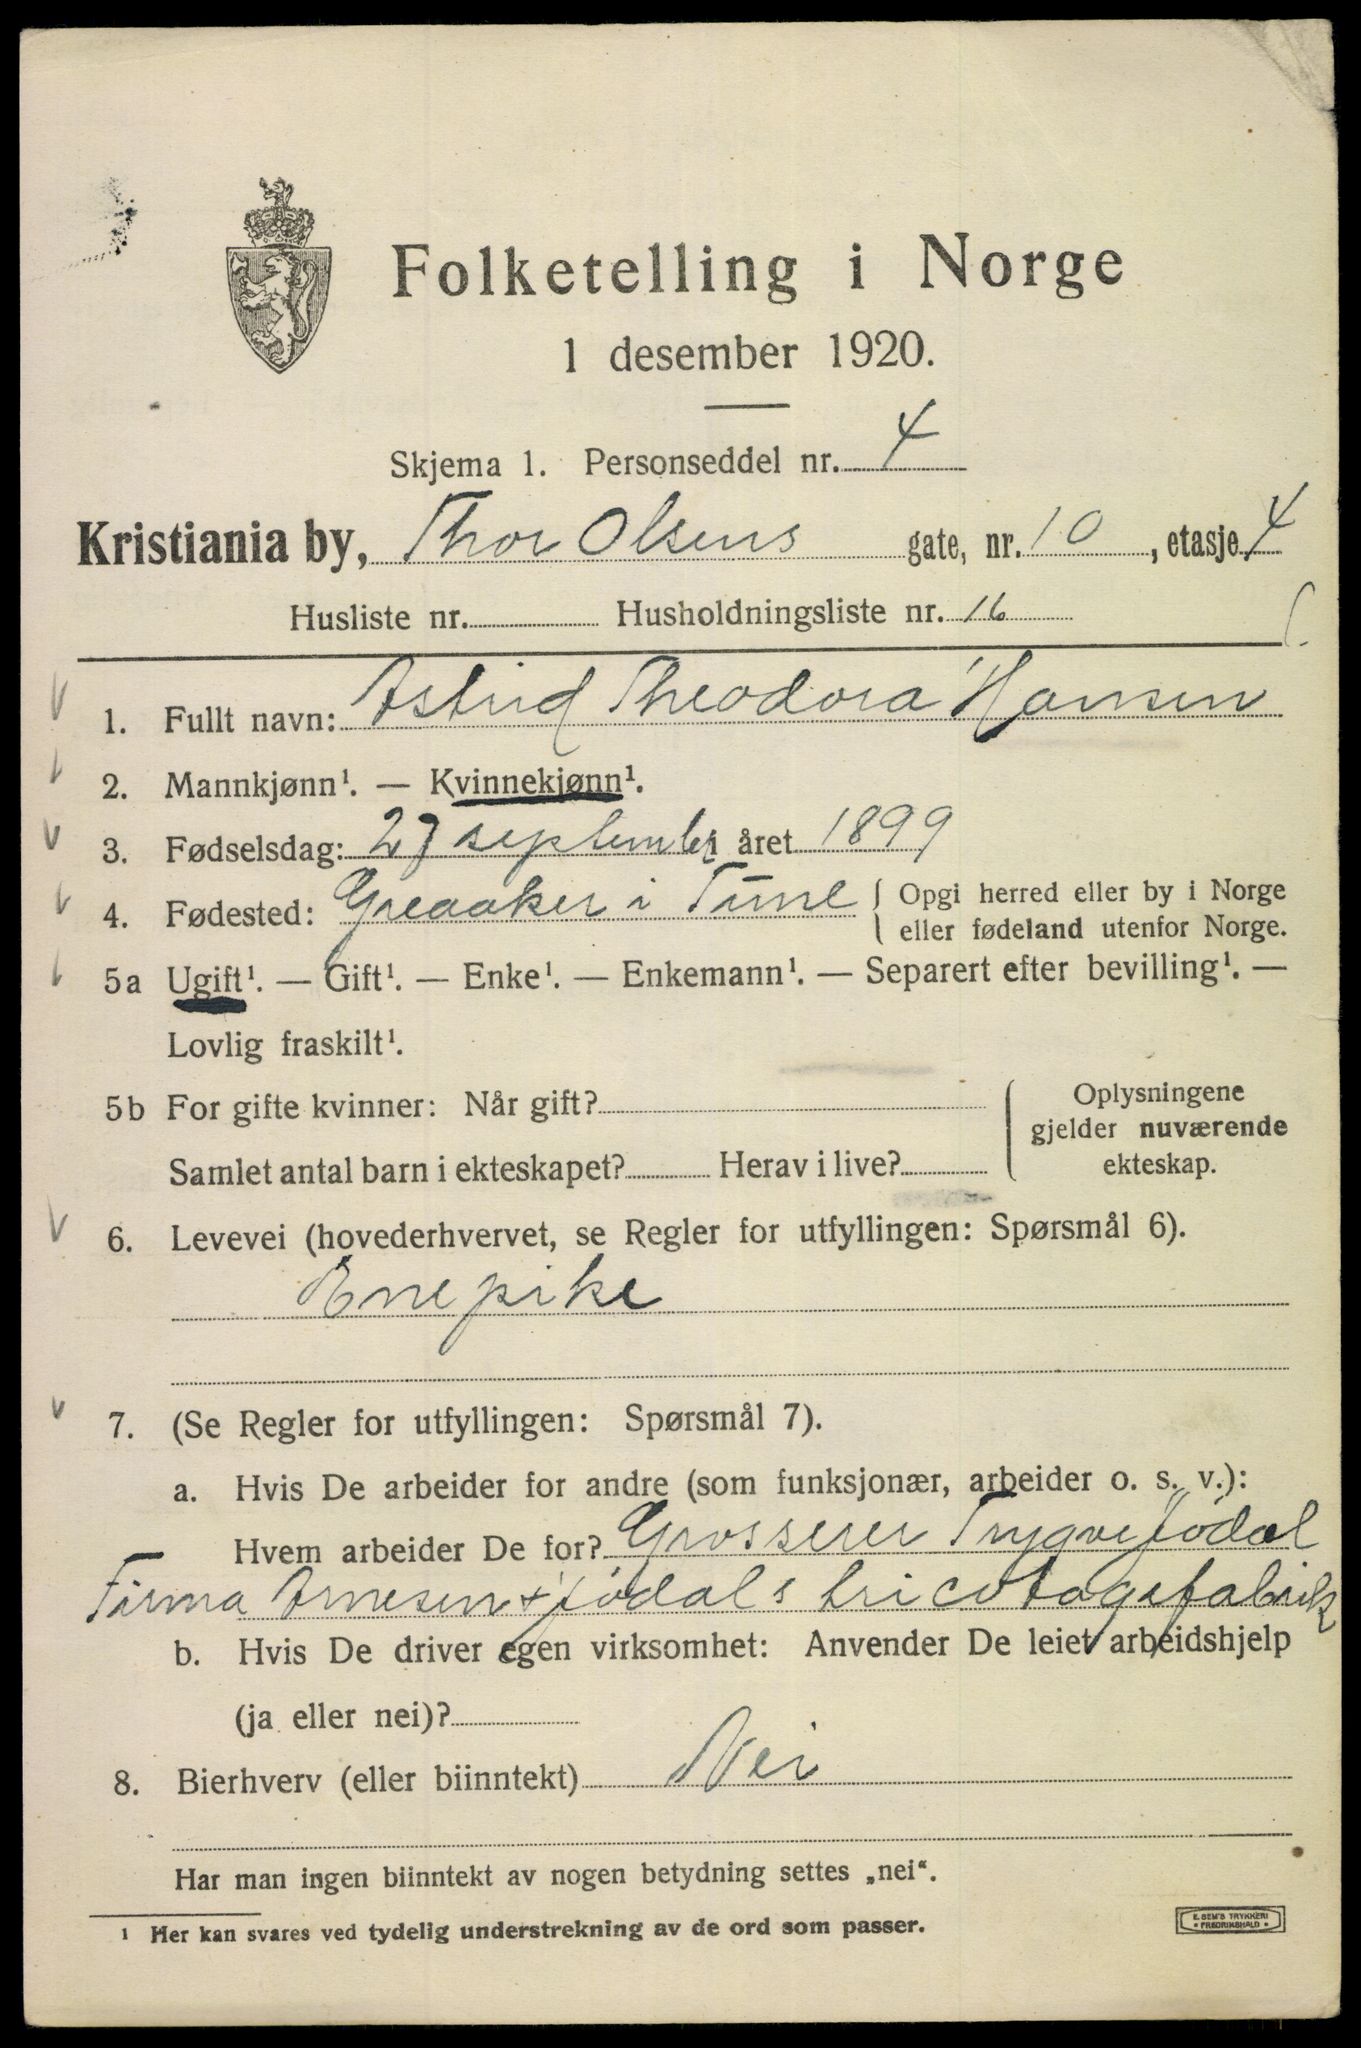 Folketelling i Norge
1 desember 1920.
Skjema 1. Personseddel nr. 4
Kristiania by, Thor Olsens gate, nr. 10, etasje 4
Husliste nr. Husholdningsliste nr. 16
1. Fullt navn: Astrid Theodora Hansen
2. Mannkjønn¹. — Kvinnekjønn¹.
3. Fødselsdag: 27 september året 1899
4. Fødested: Greaaker i Tune { Opgi herred eller by i Norge
eller fødeland utenfor Norge.
5a Ugift¹. — Gift¹. — Enke¹. — Enkemann¹. — Separert efter bevilling¹. —
Lovlig fraskilt¹.
5b For gifte kvinner: Når gift? Oplysningene
gjelder nuværende
Samlet antal barn i ekteskapet? Herav i live? ekteskap.
6. Levevei (hovederhvervet, se Regler for utfyllingen: Spørsmål 6).
Enepike
7. (Se Regler for utfyllingen: Spørsmål 7).
a. Hvis De arbeider for andre (som funksjonær, arbeider o. s. v.):
Hvem arbeider De for? Grosserer Trygve Jødal
Firma Arnesen & Jødals tricotagefabrik
b. Hvis De driver egen virksomhet: Anvender De leiet arbeidshjelp
(ja eller nei)?
8. Bierhverv (eller biinntekt) Nei
Har man ingen biinntekt av nogen betydning settes „nei“.
¹ Her kan svares ved tydelig understrekning av de ord som passer.
E. SEM'S TRYKKERI
FREDRIKSHALD